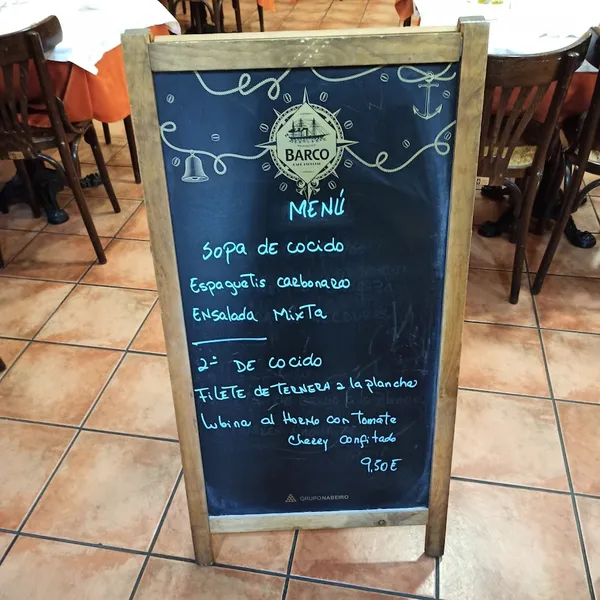 BARCO
MENÚ
Sopa de cocido
Espaguetis carbonara
Ensalada Mixta
2º DE COCIDO
FILETE de TERNERA a la plancha
Lubina al HORNO con Tomate
Cherry confitado
9,50€
GRUPONABEIRO